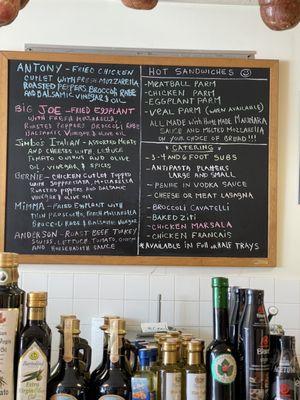 ANTONY - FRIED CHICKEN
CUTLET WITH FRESH MOZZARELLA
ROASTED PEPPERS, BROCCOLI RABE
AND BALSAMIC VINEGAR & OIL
BIG JOE - FRIED EGGPLANT
WITH FRESH MOZZARELLA
ROASTED PEPPERS BROCCOLI RABE
BALSAMIC VINEGAR & OLIVE OIL
JIMBO'S ITALIAN - ASSORTED MEATS
AND CHEESES WITH LETTUCE
TOMATO ONIONS AND OLIVE
OIL, VINEGAR & SPICES
BERNIE - CHICKEN CUTLET TOPPED
WITH SOPPRESSATA, MOZZARELLA
ROASTED PEPPERS AND BALSAMIC
VINEGAR & OLIVE OIL
MIMMA - FRIED EGGPLANT WITH
THIN PROSCIUTTO, FRESH MOZZARELLA
BROCCOLI RABE & BALSAMIC VINEGAR
ANDERSON - ROAST BEEF TURKEY
SWISS, LETTUCE, TOMATO, ONION
AND HORSERADISH SAUCE
HOT SANDWICHES
- MEATBALL PARM
- CHICKEN PARM
- EGGPLANT PARM
- VEAL PARM (WHEN AVAILABLE)
ALL MADE WITH HOME MADE MARINARA
SAUCE AND MELTED MOZZARELLA
ON YOUR CHOICE OF BREAD!!!
CATERING
- 3-4 AND 6 FOOT SUBS
- ANTIPASTA PLATTERS
LARGE AND SMALL
- PENNE IN VODKA SAUCE
- CHEESE OR MEAT LASAGNA
- BROCCOLI CAVATELLI
- BAKED ZITI
- CHICKEN MARSALA
- CHICKEN FRANCAIS
*AVAILABLE IN FULL OR HALF TRAYS